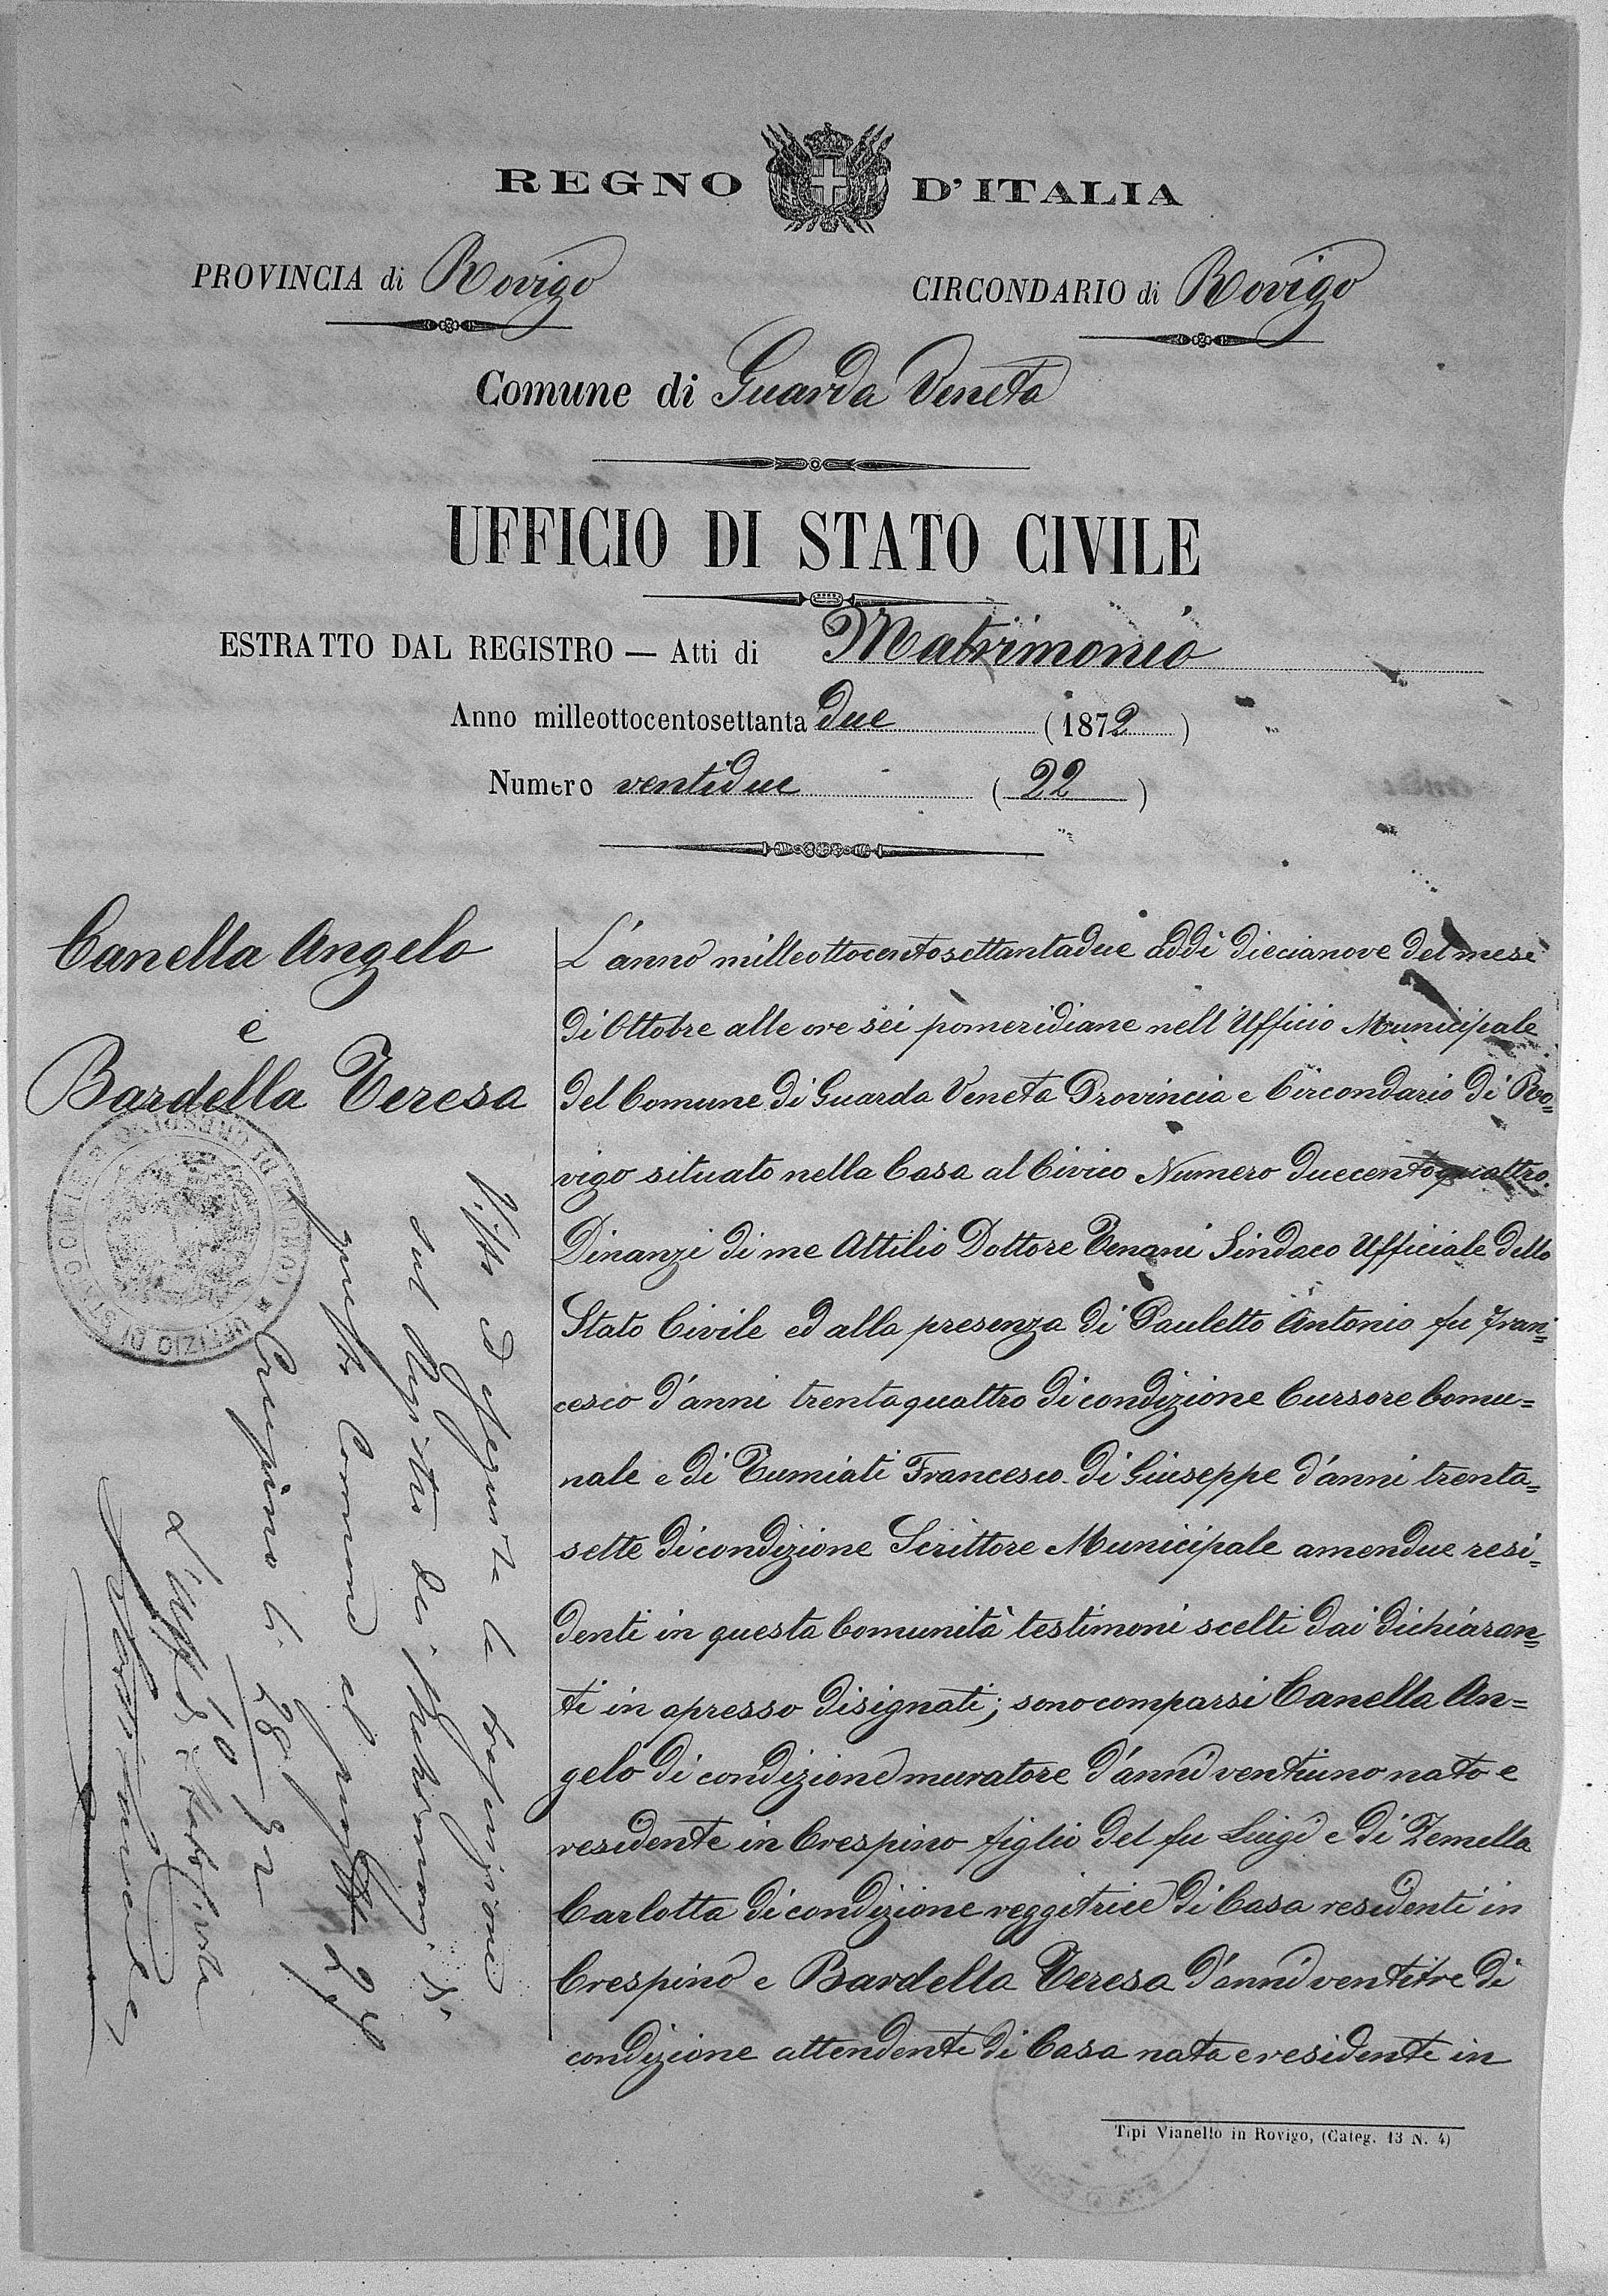 REGNO D'ITALIA
PROVINCIA di Rovigo
CIRCONDARIO di Rovigo
Comune di Guarda Veneta
UFFICIO DI STATO CIVILE
ESTRATTO DAL REGISTRO — Atti di Matrimonio
Anno milleottocentosettanta due (1872)
Numero ventidue (22)
Canella Angelo
e
Bardella Teresa
L'anno milleottocentosettantadue addi diecianove del mese
di Ottobre alle ore sei pomeridiane nell'Ufficio Municipale
del Comune di Guarda Veneta Provincia e Circondario di Ro=
vigo situato nella Casa al Civico Numero duecentoquattro.
Dinanzi di me Attilio Dottore Tenani Sindaco Ufficiale dello
Stato Civile ed alla presenza di Pauletto Antonio fu Fran=
cesco d'anni trentaquattro di condizione Cursore Comu=
nale e di Tumiati Francesco di Giuseppe d'anni trenta=
sette di condizione Scrittore Municipale amendue resi=
denti in questa Comunità testimoni scelti dai dichiaran=
ti in apresso disignati; sono comparsi Canella An=
gelo di condizione muratore d'anni ventiuno nato e
residente in Crespino figlio del fu Luigi e di Zemella
Carlotta di condizione reggitrice di Casa residenti in
Crespino e Bardella Teresa d'anni ventitre di
condizione attendente di Casa nata e residente in
Visto D eseguita la
sul Registro dei matrimoni di
questo Comune al
Crespino li 28/10 72
L'Uff. di Stato Civile
UFFIZIO DI STATO CIVILE
DI CRESPINO
Tipi Vianello in Rovigo, (Categ. 13 N. 4)